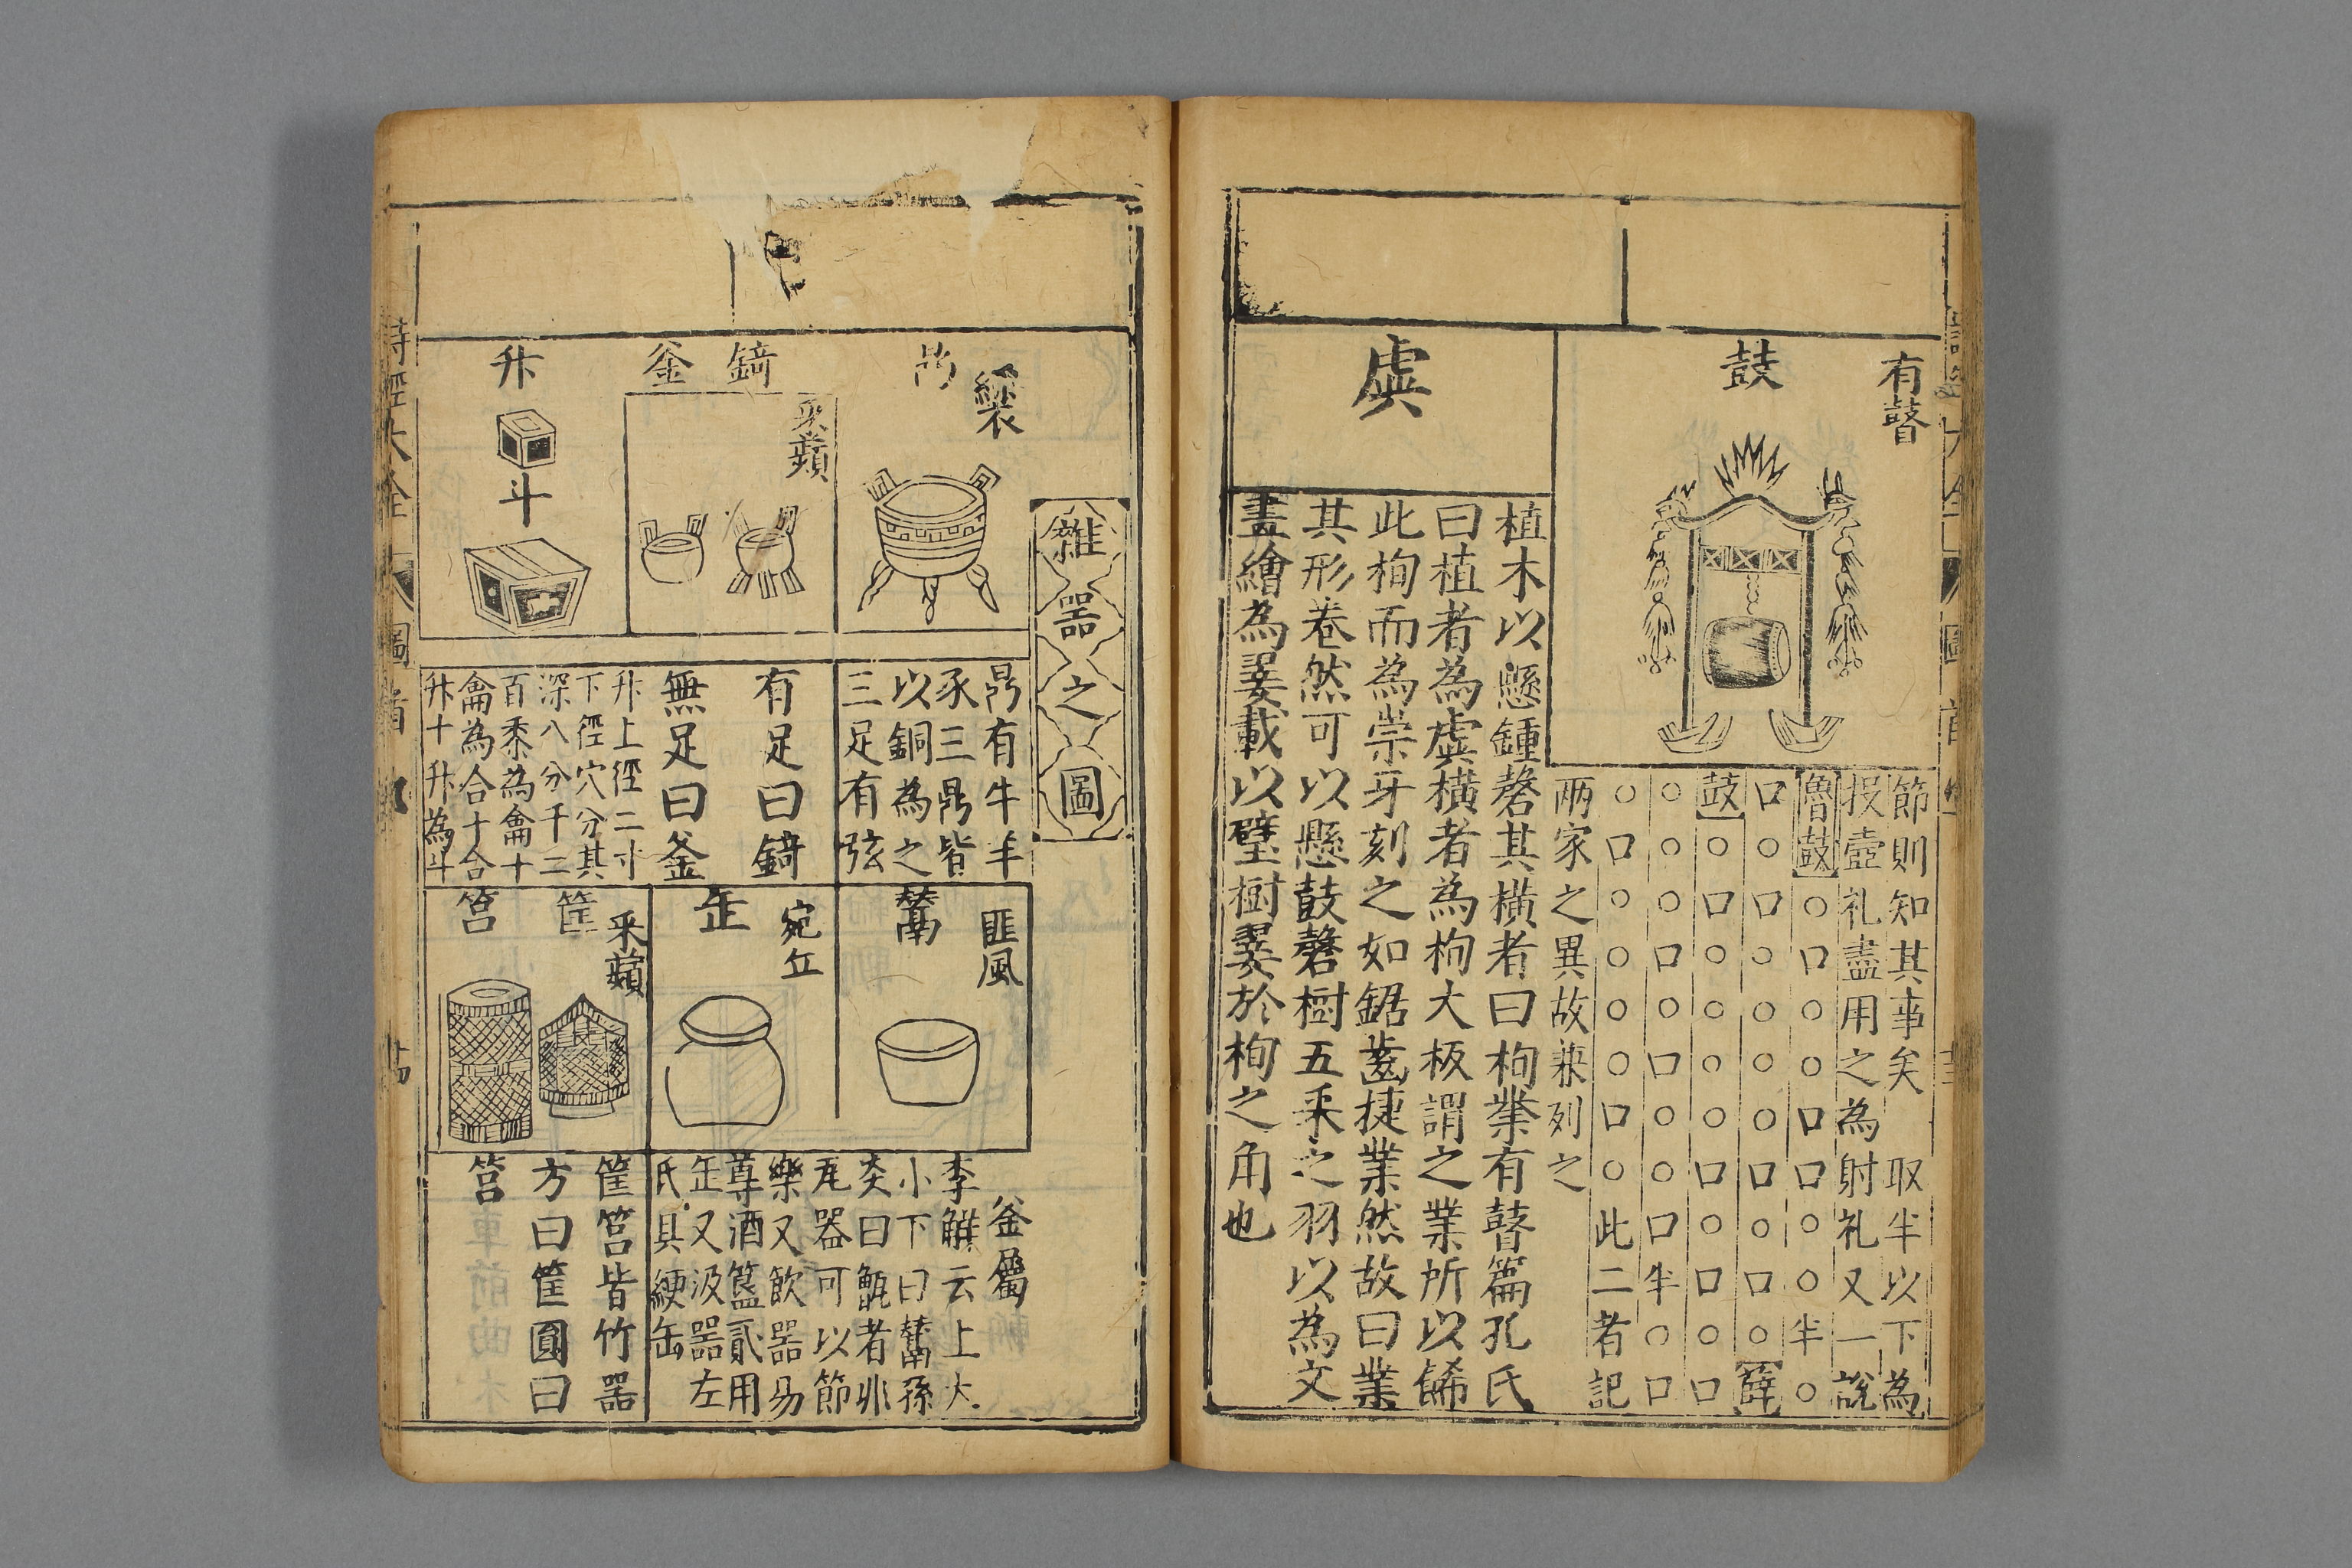 有瞽
鼓
節則知其事矣　取半以下為
投壺礼盡用之為射礼又一說
魯鼓○口○○口口○○半○
口○口○○○口○口○薛
鼓○口○○○口○口○口
○○○口○口○○口半○口
○口○○○○口○此二者記
兩家之異故兼列之
虡
植木以懸鍾磬其橫者曰栒業有瞽篇孔氏
曰植者為虡橫者為栒大板謂之業所以餙
此栒而為崇牙刻之如鋸齒捷業然故曰業
其形卷然可以懸鼓磬樹五采之羽以為文
畫繪為翣載以璧樹翣於栒之角也
雜器之圖
絲衣
鼎
采蘋
錡
釜
升
斗
鼎有牛羊
豕三鼎皆
以銅為之
三足有弦
有足曰錡
無足曰釜
升上徑二寸
下徑六分其
深八分千二
百黍為龠十
龠為合十合
升十升為斗
匪風
鬵
宛丘
缶
采蘋
筐
筥
釜屬
李觶云上大
小下曰鬵孫
炎曰甑者非
瓦器可以節
樂又飲器易
尊酒簋貳用
缶又汲器左
氏具綆缶
筐筥皆竹器
方曰筐圓曰
筥
詩經大全
圖